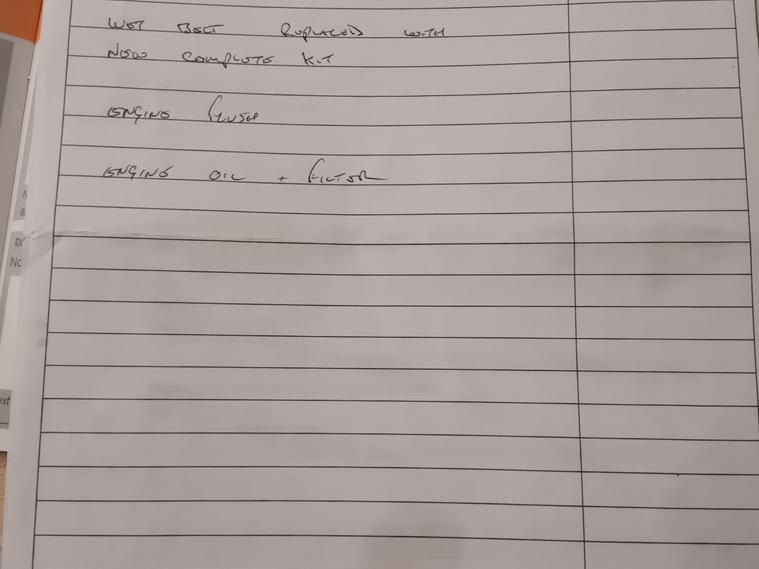 WET BELT REPLACED WITH
NEW COMPLETE KIT
ENGINE FLUSH
ENGINE OIL + FILTER
No
ext